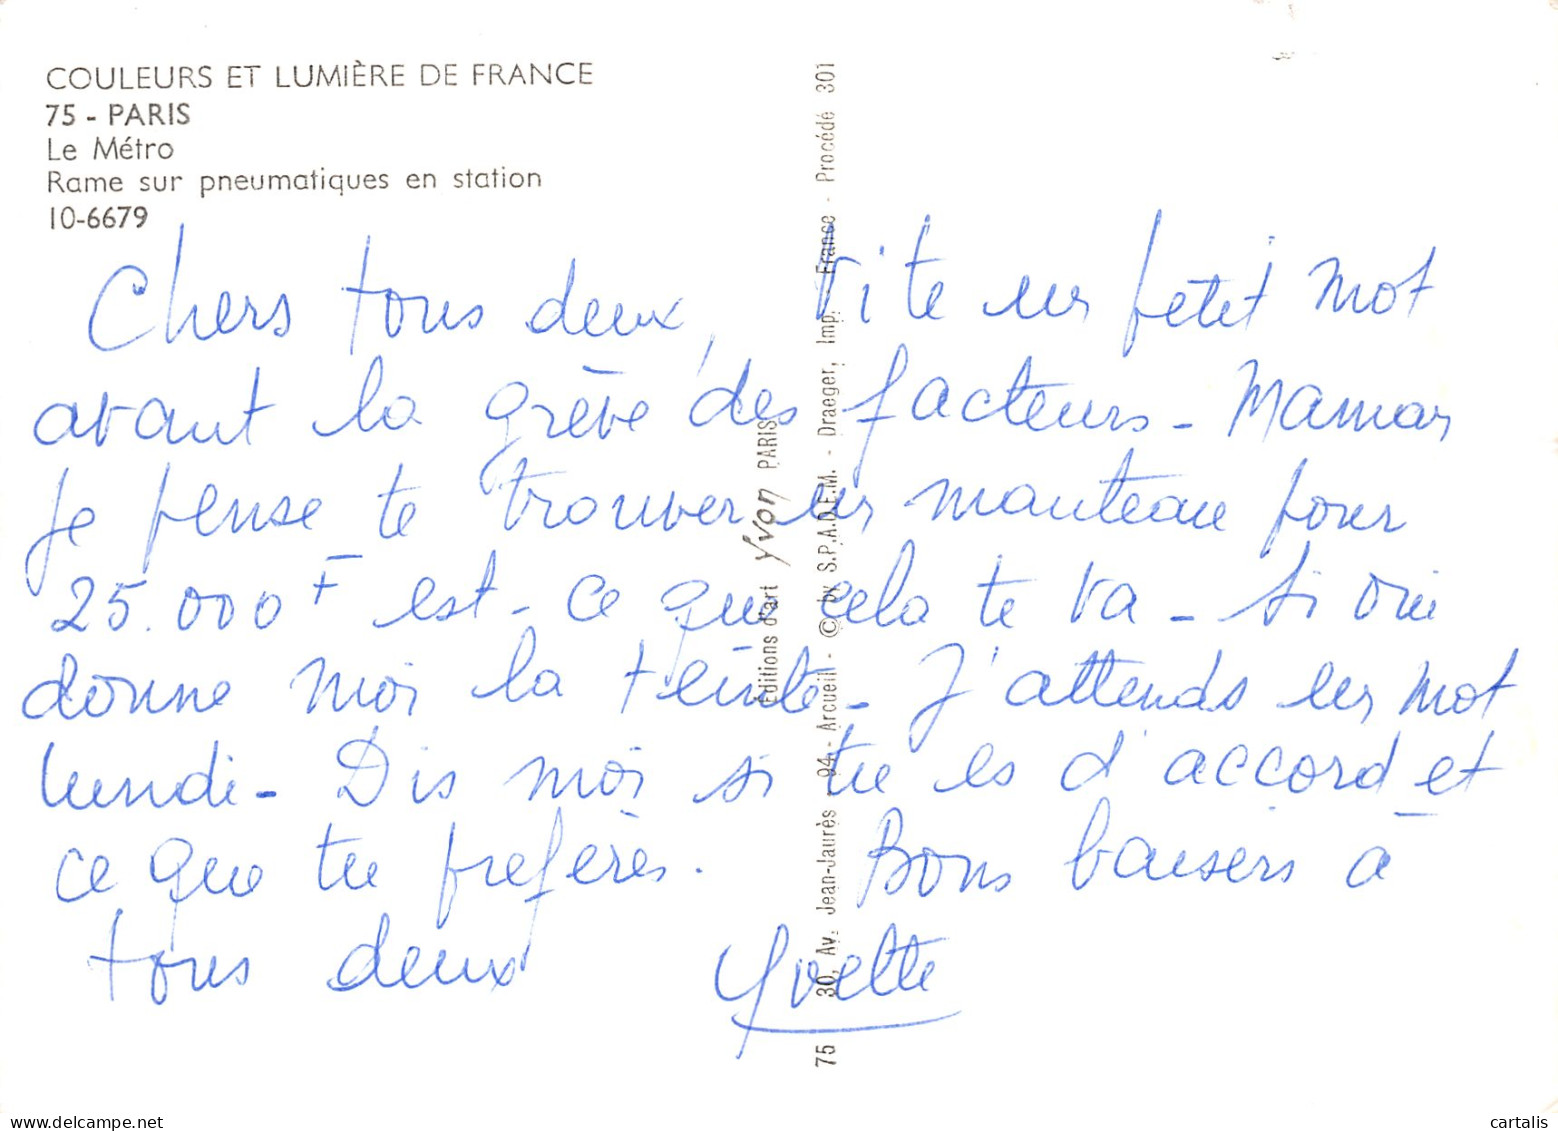 COULEURS ET LUMIÈRE DE FRANCE
75 - PARIS
Le Métro
Rame sur pneumatiques en station
10-6679
Chers tous deux, Vite un petit mot
avant la grève des facteurs - Maman
je pense te trouver un manteau pour
25.000 F est-ce que cela te va - Si oui
donne moi la teinte - J'attends un mot
lundi - Dis moi si tu es d'accord et
ce que tu prefères. Bons baisers à
tous deux Yvette
Editions d'art Yvon PARIS
75 30, Av. Jean-Jaurès - 94 - Arcueil - © by S.P.A.D.E.M. - Draeger, Imp. - France - Procédé 301
cartalis